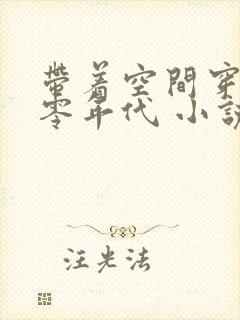 帶着空間穿
零年代 小說
汪光法